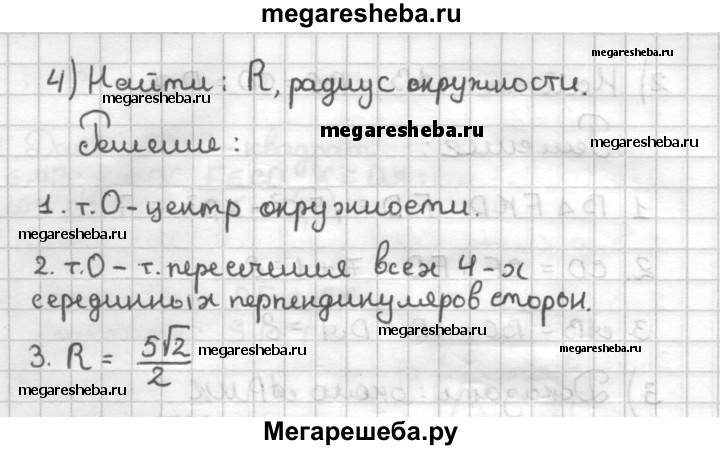 megaresheba.ru
megaresheba.ru
4) Найти: R, радиус окружности.
megaresheba.ru
megaresheba.ru
Решение:
megaresheba.ru
1. т.О - центр окружности.
megaresheba.ru
megaresheba.ru
2. т.О - т. пересечения всех 4-х
серединных перпендикуляров сторон.
megaresheba.ru
3. R = 5√2/2
megaresheba.ru
megaresheba.ru
megaresheba.ru
Мегарешеба.ру